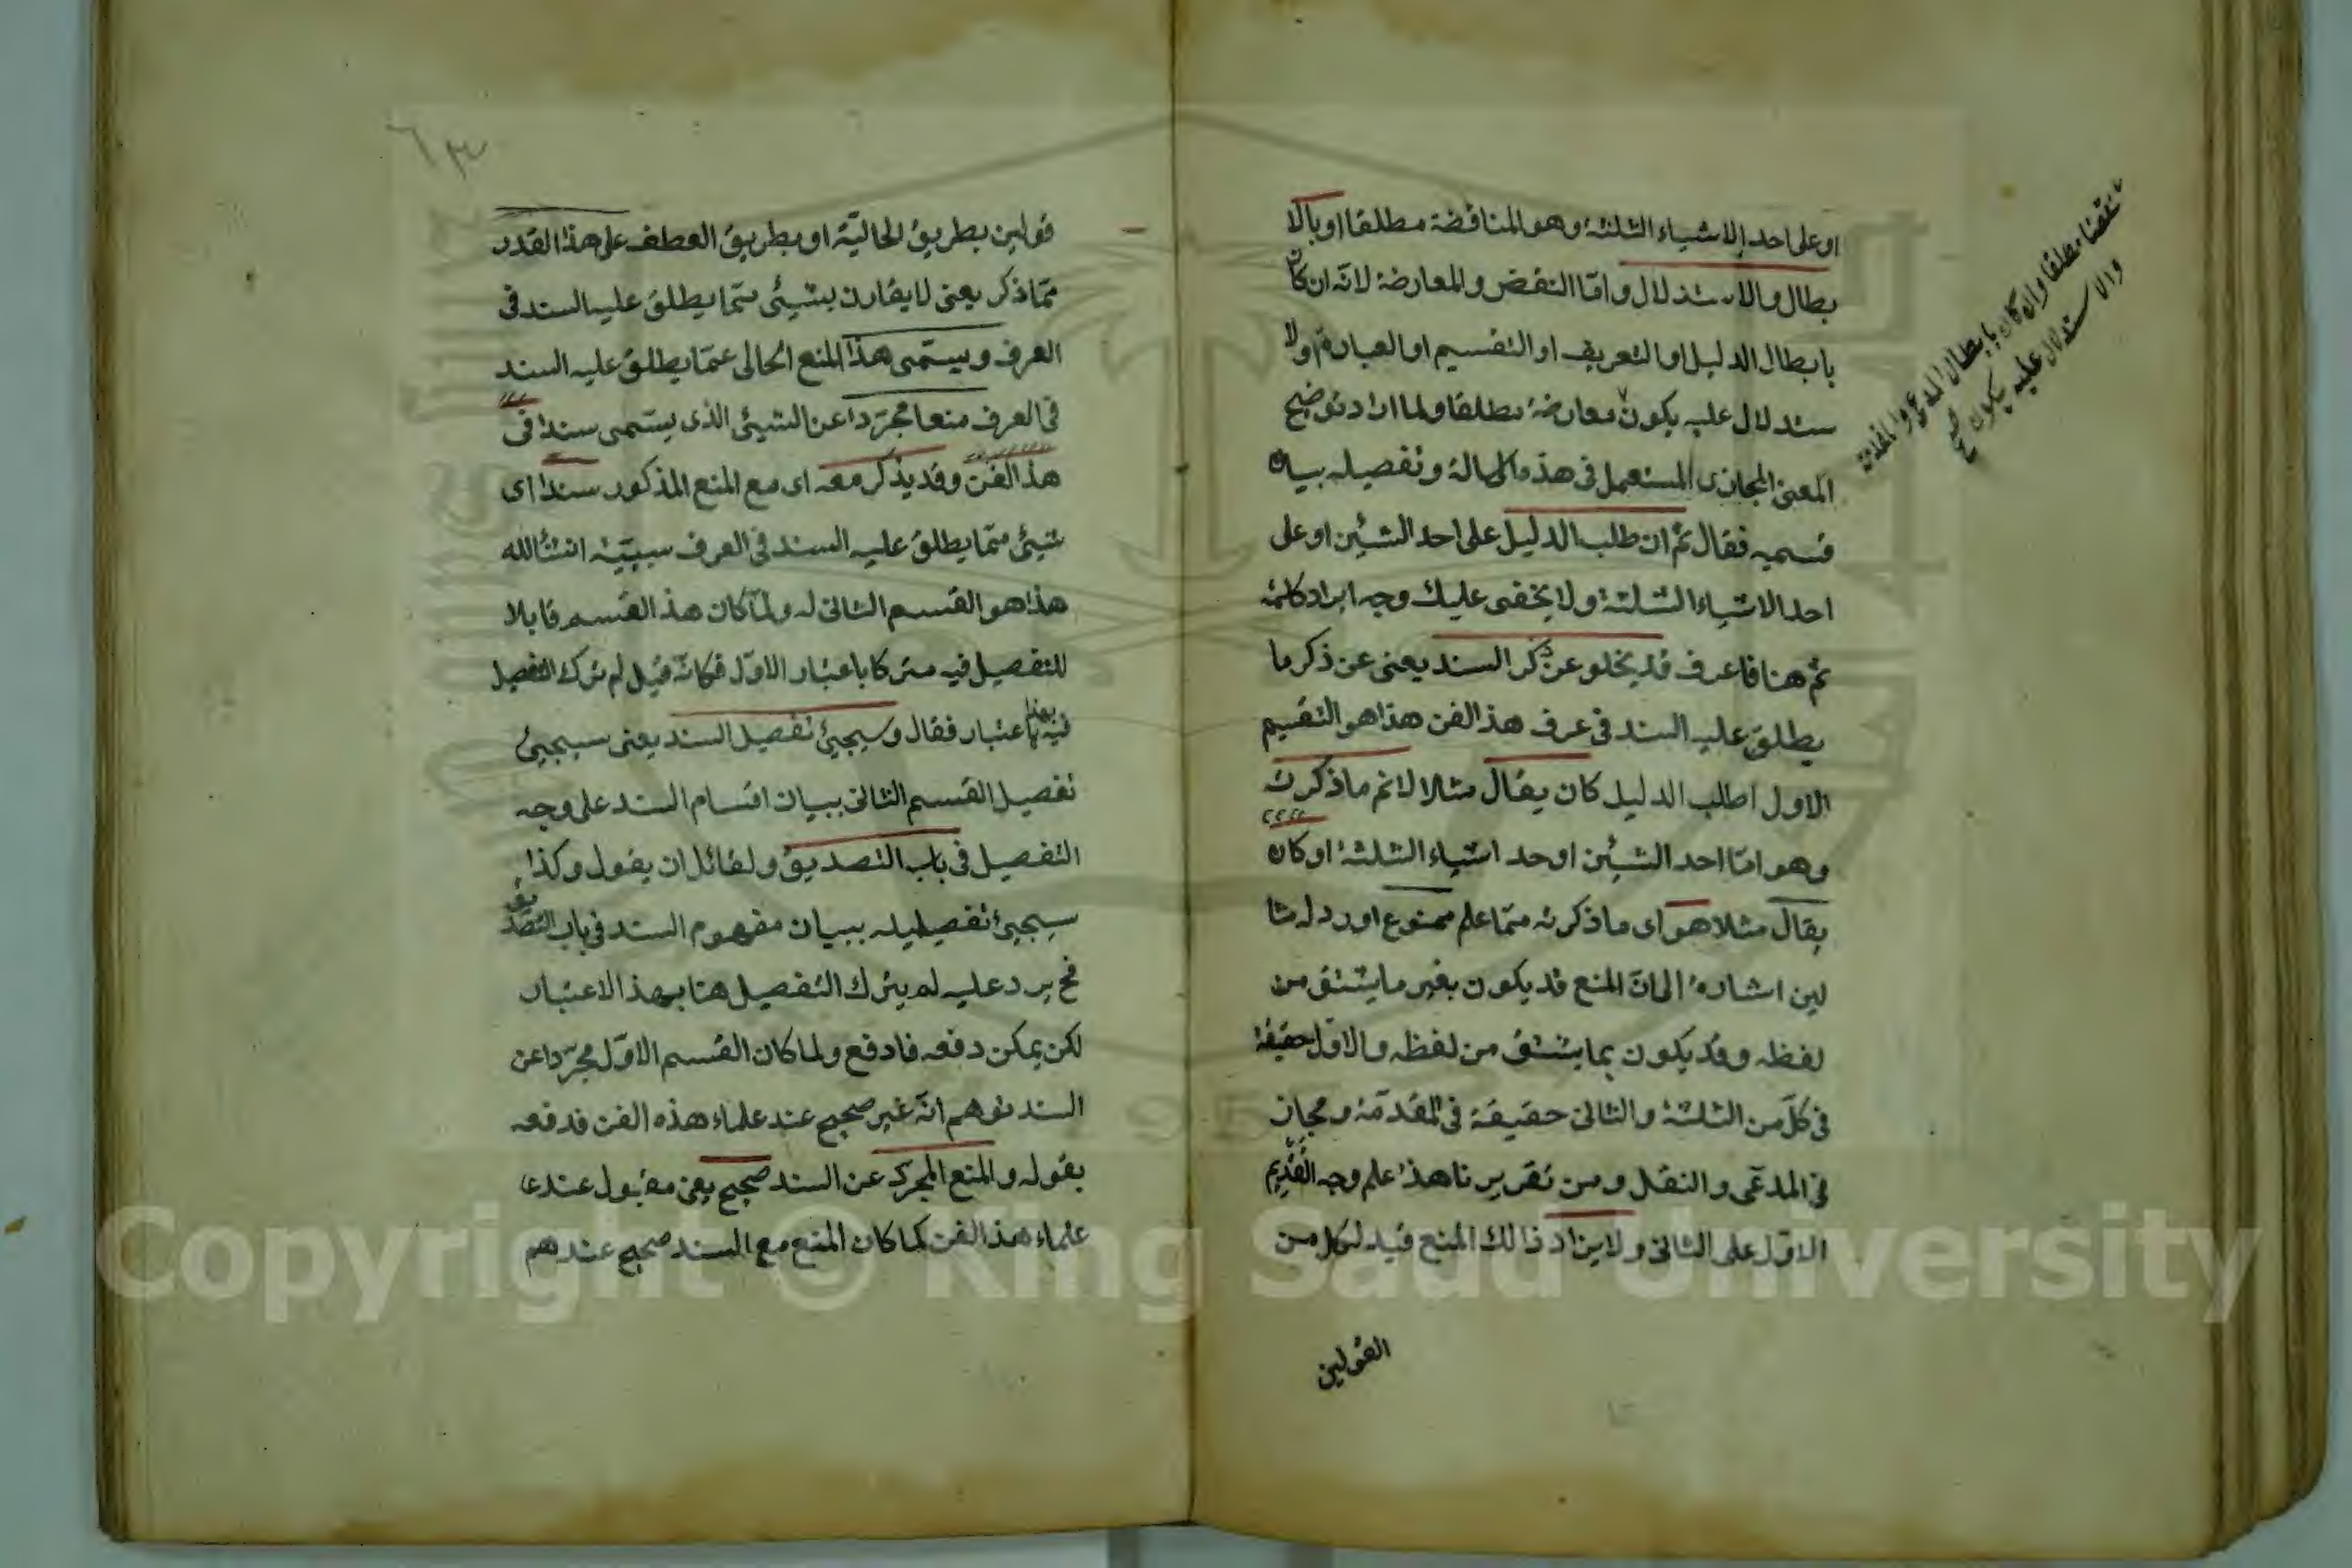 او على احد الاشياء الثلثة وهو المناقضة مطلقا او بالا
بطال والاستدلال واما النقض والمعارضة لانه ان كان
بابطال الدليل او التعريف او التقسيم او العبارة اولا
ستدلال عليه يكون معارضة مطلقا ولما اراد توضيح
المعنى المجازى المستعمل فى هذه الرسالة وتفصيله بيان
قسميه فقال ثم ان طلب الدليل على احد الشيئين او على
احد الاشياء الثلثة ولا يخفى عليك وجه ايراد كلمة
ثم هنا فاعرف قد يخلو عن ذكر السند يعنى عن ذكر ما
يطلق عليه السند فى عرف هذا الفن هذا هو التقسيم
الاول اطلب الدليل كان يقال مثلا لا نم ما ذكرته
وهو اما احد الشيئين او حد اشياء الثلثة او كان
يقال مثلا هو اى ما ذكرته مما علم ممنوع اورد له مثا
لين اشارة الى ان المنع قد يكون بغير ما يشتق من
لفظه وقد يكون بما يشتق من لفظه والاول حقيقة
فى كل من الثلثة والثانى حقيقة فى المقدمة ومجاز
فى المدعى والنقل ومن تقريرنا هذا علم وجه التقديم
الاول على الثانى ولا يزاد ذالك المنع قيد لكل من
القولين
نقضا مطلقا وان كان بابطال المدعى والمقدمة
والاستدلال عليه يكون صح
٦٣
قولين بطريق الحالية او بطريق العطف على هذا القدر
مما ذكر يعنى لا يقارن بشيئ مما يطلق عليه السند فى
العرف ويسمى هذا المنع الحالى عما يطلق عليه السند
فى العرف منعا مجردا عن الشيئ الذى يسمى سندا فى
هذا الفن وقد يذكر معه اى مع المنع المذكور سندا اى
شيئ مما يطلق عليه السند فى العرف سيبينه انشألله
هذا هو القسم الثانى له ولما كان هذا القسم قابلا
للتفصيل فيه متركا باعتبار الاول فكانه قيل لم ترك التفصيل
فيه بهذا الاعتبار فقال وسيجيئ تفصيل السند يعنى سيجيئ
تفصيل القسم الثانى ببيان اقسام السند على وجه
التفصيل فى باب التصديق ولقائل ان يقول وكذا
سيجيئ تفصيليه ببيان مفهوم السند فى باب التصديق
فح يرد عليه لم يترك التفصيل هنا بهذا الاعتبار
لكن يمكن دفعه فادفع ولما كان القسم الاول مجردا عن
السند توهم انه غير صحيح عند علماء هذه الفن فدفعه
بقوله والمنع المجرد عن السند صحيح يعنى مقبول عند
علماء هذا الفن كما كان المنع مع السند صحيح عندهم
Copyright © King Saud University